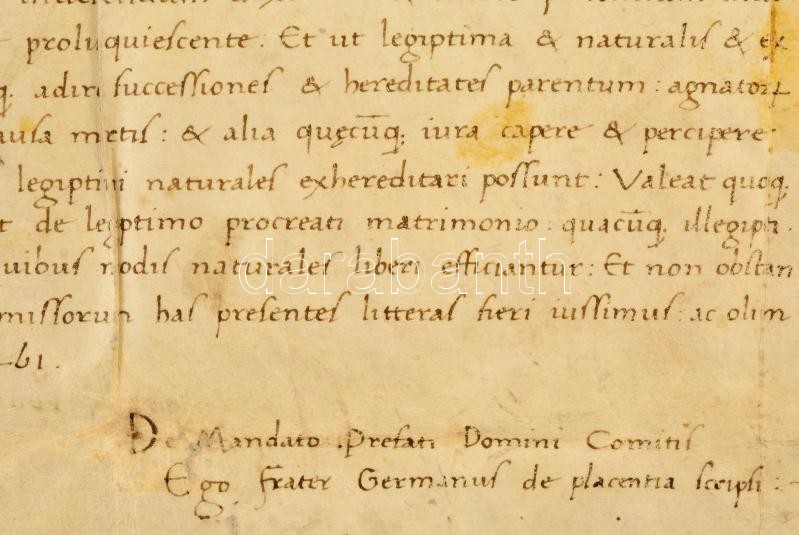 prolu quiescente. Et ut legiptima & naturalis & ex
q. adiri successiones & hereditates parentum: agnatorum
ausa mrtis: & alia quęcūq. iura capere & percipere:
legiptimi naturales exhereditari possunt: Valeat quoq.
t de legiptimo procreati matrimonio: quacūq. illegipti.
uibus nodis naturales liberi efficiantur: Et non obstan
missorum has presentes litteras fieri iussimus: ac olim
De Mandato Prefati Domini Comitis
Ego frater Germanus de placentia scripsi:
darabanth